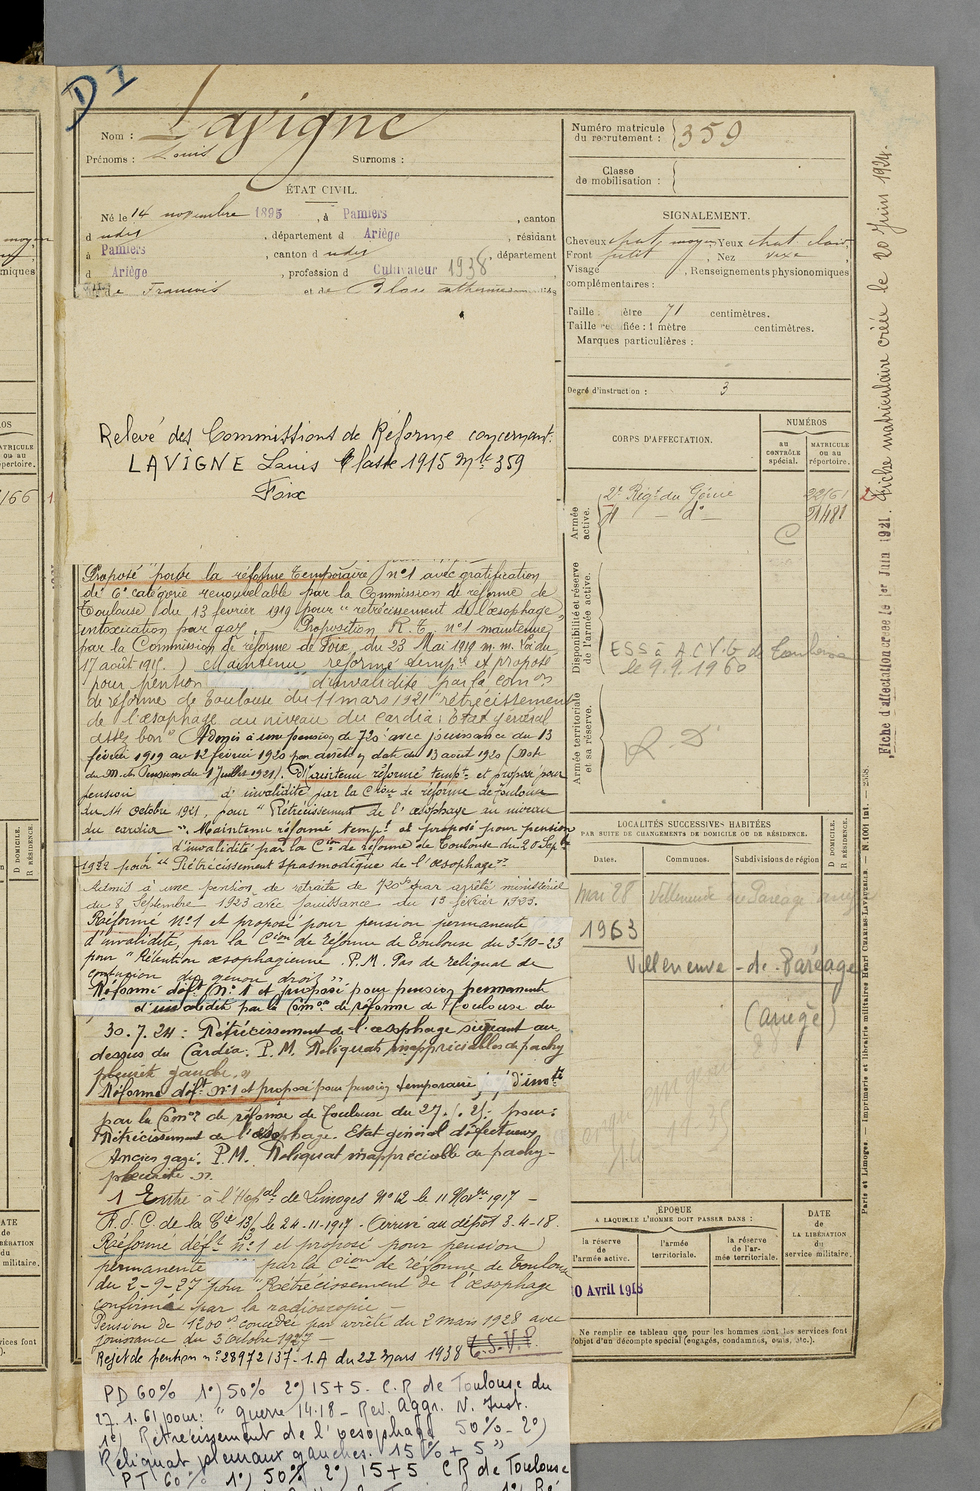 D I
Nom : Lavigne
Prénoms : Louis Surnoms :
ÉTAT CIVIL.
Né le 14 novembre 1895, à Pamiers, canton
d udit, département d Ariège, résidant
à Pamiers, canton d udit, département
d Ariège, profession d Cultivateur 1938
de François et de Blou Catherine
Numéro matricule du recrutement : 359
Classe de mobilisation :
SIGNALEMENT.
Cheveux chat. moyen Yeux chat. clair
Front petit, Nez vexe
Visage, Renseignements physionomiques
complémentaires :
Taille : mètre 71 centimètres.
Taille rectifiée : 1 mètre centimètres.
Marques particulières :
Degré d'instruction : 3
Relevé des Commissions de Réforme concernant
LAVIGNE Louis Classe 1915 Mle 359
Foix
CORPS D'AFFECTATION.
NUMÉROS
AU CONTRÔLE spécial.
MATRICULE ou au répertoire.
Armée active.
2e Régt du Génie 22161
d° 21481
C
Disponibilité et réserve de l'armée active.
ESS à A.C.V.G de Toulouse
le 9.9.1960
Armée territoriale et sa réserve.
R. D.
Proposé pour la réforme temporaire n°1 avec gratification
de 6e catégorie renouvelable par la Commission de réforme de
Toulouse du 13 février 1919 pour "rétrécissement de l'œsophage,
intoxication par gaz. Proposition R.T. n°1 maintenue
par la Commission de réforme de Foix du 23 Mai 1919
17 août 1919.) Maintenu réformé tempre et proposé
pour pension d'invalidité par la comon
de réforme de Toulouse du 11 mars 1921 "rétrécissement
de l'œsophage au niveau du cardia : Etat général
assez bon" Admis à une pension de 720f avec jouissance du 13
février 1919 au 12 février 1920 par arrêté en date du 13 août 1920 (Not.
du M. des Pensions du 1 Juillet 1921). Maintenu réformé tempre et proposé pour
pension d'invalidité par la Cion de réforme de Toulouse
du 14 Octobre 1921, pour "Rétrécissement de l'œsophage au niveau
du cardia". Maintenu réformé tempre et proposé pour pension
d'invalidité par la Cion de réforme de Toulouse du 20 Septbre
1922 pour "Rétrécissement spasmodique de l'œsophage"
Admis à une pension de retraite de 720f par arrêté ministériel
du 8 Septembre 1923 avec jouissance du 13 février 1923.
Réformé N°1 et proposé pour pension permanente
d'invalidité, par la Cion de réforme de Toulouse du 3-10-23
pour "Rétention œsophagienne. P.M. Pas de reliquat de
contusion du genou droit"
Réformé déft N°1 et proposé pour pension permanente
d'invalidité par la Comon de réforme de Toulouse du
30.7.24 : Rétrécissement de l'œsophage siégeant au
dessus du Cardia. P.M. Reliquats inappréciables de pachy
pleurite gauche."
Réformé déft N°1 et proposé pour pension temporaire d'invté
par la Comon de réforme de Toulouse du 27.1.25 : pour :
Rétrécissement de l'œsophage. Etat général défectueux,
Ancien gazé. P.M. Reliquat inappréciable de pachy-
pleurite ".
1 Entré à l'Hopal de Limoges N°12 le 11 Novbre 1917 -
R.d.C. de la Cie 13/ le 24-11-1917. Arrivé au dépôt 3-4-18.
Réformé déft n°1 et proposé pour pension
permanente par la Cion de réforme de Toulouse
du 2-9-27 pour "Rétrécissement de l'œsophage
confirmé par la radioscopie -
Pension de 1200f concédée par arrêté du 2 mars 1928 avec
jouissance du 3 Octobre 1927
Rejet de pension n° 28972/137-1.A du 22 mars 1938 T.S.V.P.
PD 60% 1°) 50% 2°) 15+5. C.R de Toulouse du
27.1.61 pour : "Guerre 14.18 - Rev. Aggr. N. Just.
1°) Rétrécissement de l'oesophage 50% - 2°)
Reliquat pleuraux gauches. 15% + 5"
PT 60% 1°) 50% 2°) 15+5 CR de Toulouse
LOCALITÉS SUCCESSIVES HABITÉES
PAR SUITE DE CHANGEMENTS DE DOMICILE OU DE RÉSIDENCE.
Dates. Communes. Subdivisions de région
D DOMICILE.
R RÉSIDENCE.
Mai 28 Villeneuve du Paréage Ariège
1963
Villeneuve-du-Paréage
(Ariège)
ÉPOQUE
A LAQUELLE L'HOMME DOIT PASSER DANS :
la réserve de l'armée active.
l'armée territoriale.
la réserve de l'armée territoriale.
DATE de LA LIBÉRATION du service militaire.
10 Avril 1918
Ne remplir ce tableau que pour les hommes dont les services font
l'objet d'un décompte spécial (engagés, condamnés, omis, etc.).
Fiche d'affectation créée le 1er Juin 1921. Fiche matriculaire créée le 20 Juin 1924.
Paris et Limoges. — Imprimerie et librairie militaires Henri CHARLES-LAVAUZELLE. — N. 1001 int. — 2558